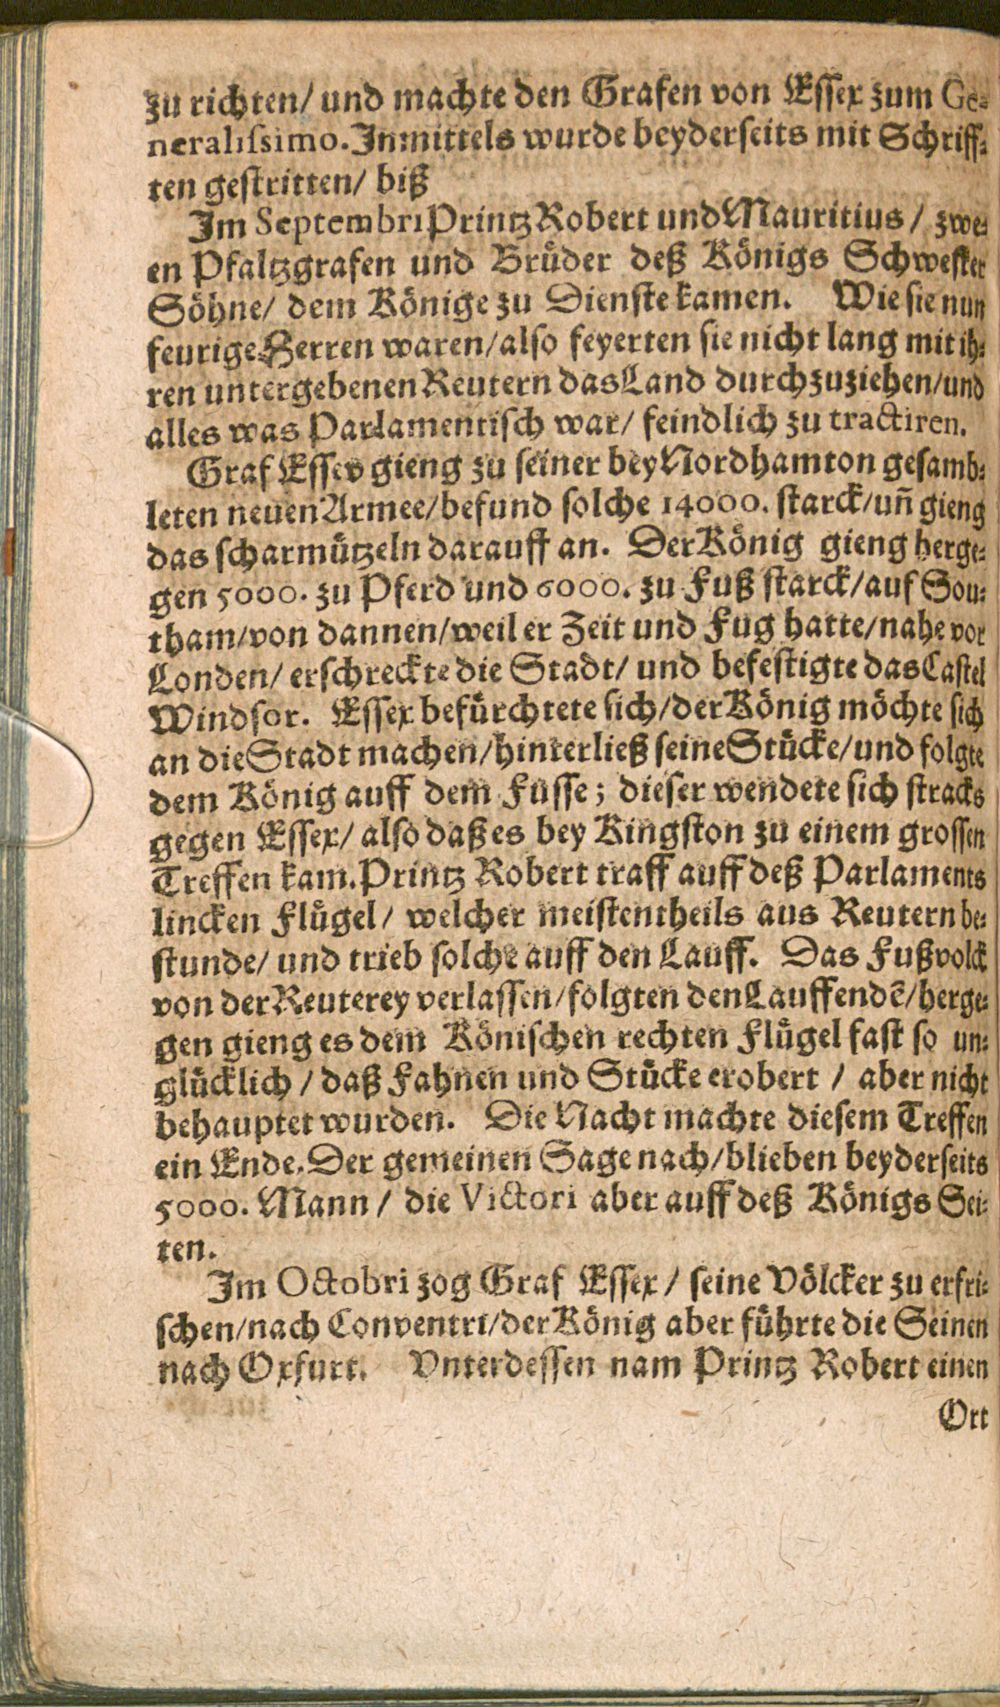 zu richten/ und machte den Grafen von Essex zum Ge-
neralissimo. Inmittels wurde beyderseits mit Schriff-
ten gestritten/ biß
Im Septembri Printz Robert und Mauritius/ zwe-
en Pfaltzgrafen und Brüder deß Königs Schwester
Söhne/ dem Könige zu Dienste kamen. Wie sie nun
feurige Herren waren/ also feyerten sie nicht lang mit ih-
ren untergebenen Reutern das Land durchzuziehen/ und
alles was Parlamentisch war/ feindlich zu tractiren.
Graf Essex gieng zu seiner bey Nordhamton gesamb-
leten neuen Armee/ befund solche 14000. starck/ uñ gieng
das scharmützeln darauff an. Der König gieng herge-
gen 5000. zu Pferd und 6000. zu Fuß starck/ auf Sou-
tham/ von dannen/ weil er Zeit und Fug hatte/ nahe vor
Londen/ erschreckte die Stadt/ und befestigte das Castel
Windsor. Essex befürchtete sich/ der König möchte sich
an die Stadt machen/ hinterließ seine Stücke/ und folgte
dem König auff dem Fusse; dieser wendete sich stracks
gegen Essex/ also daß es bey Kingston zu einem grossen
Treffen kam. Printz Robert traff auff deß Parlaments
lincken Flügel/ welcher meistentheils aus Reutern be-
stunde/ und trieb solche auff den Lauff. Das Fußvolck
von der Reuterey verlassen/ folgten den Lauffendẽ/ herge-
gen gieng es dem Könischen rechten Flügel fast so un-
glücklich/ daß Fahnen und Stücke erobert/ aber nicht
behauptet wurden. Die Nacht machte diesem Treffen
ein Ende. Der gemeinen Sage nach/ blieben beyderseits
5000. Mann/ die Victori aber auff deß Königs Sei-
ten.
Im Octobri zog Graf Essex/ seine Völcker zu erfri-
schen/ nach Conventri/ der König aber führte die Seinen
nach Oxfurt. Unterdessen nam Printz Robert einen
Ort